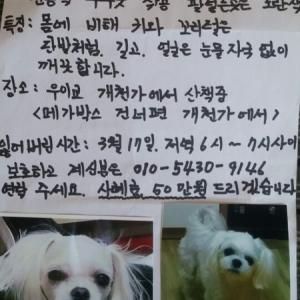 특징: 몸에 비해 키와 꼬리털은
찬밥처럼, 길고, 얼굴은 눈물자국 없이
깨끗합니다.
장소: 우이교 개천가에서 산책중
<메가박스 건너편 개천가에서>
잃어버린시간: 3월 17일. 저녁 6시~7시사이
보호하고 계신분은 010-5430-9146
연락 주세요. 사례호, 50만원 드리겠습니다